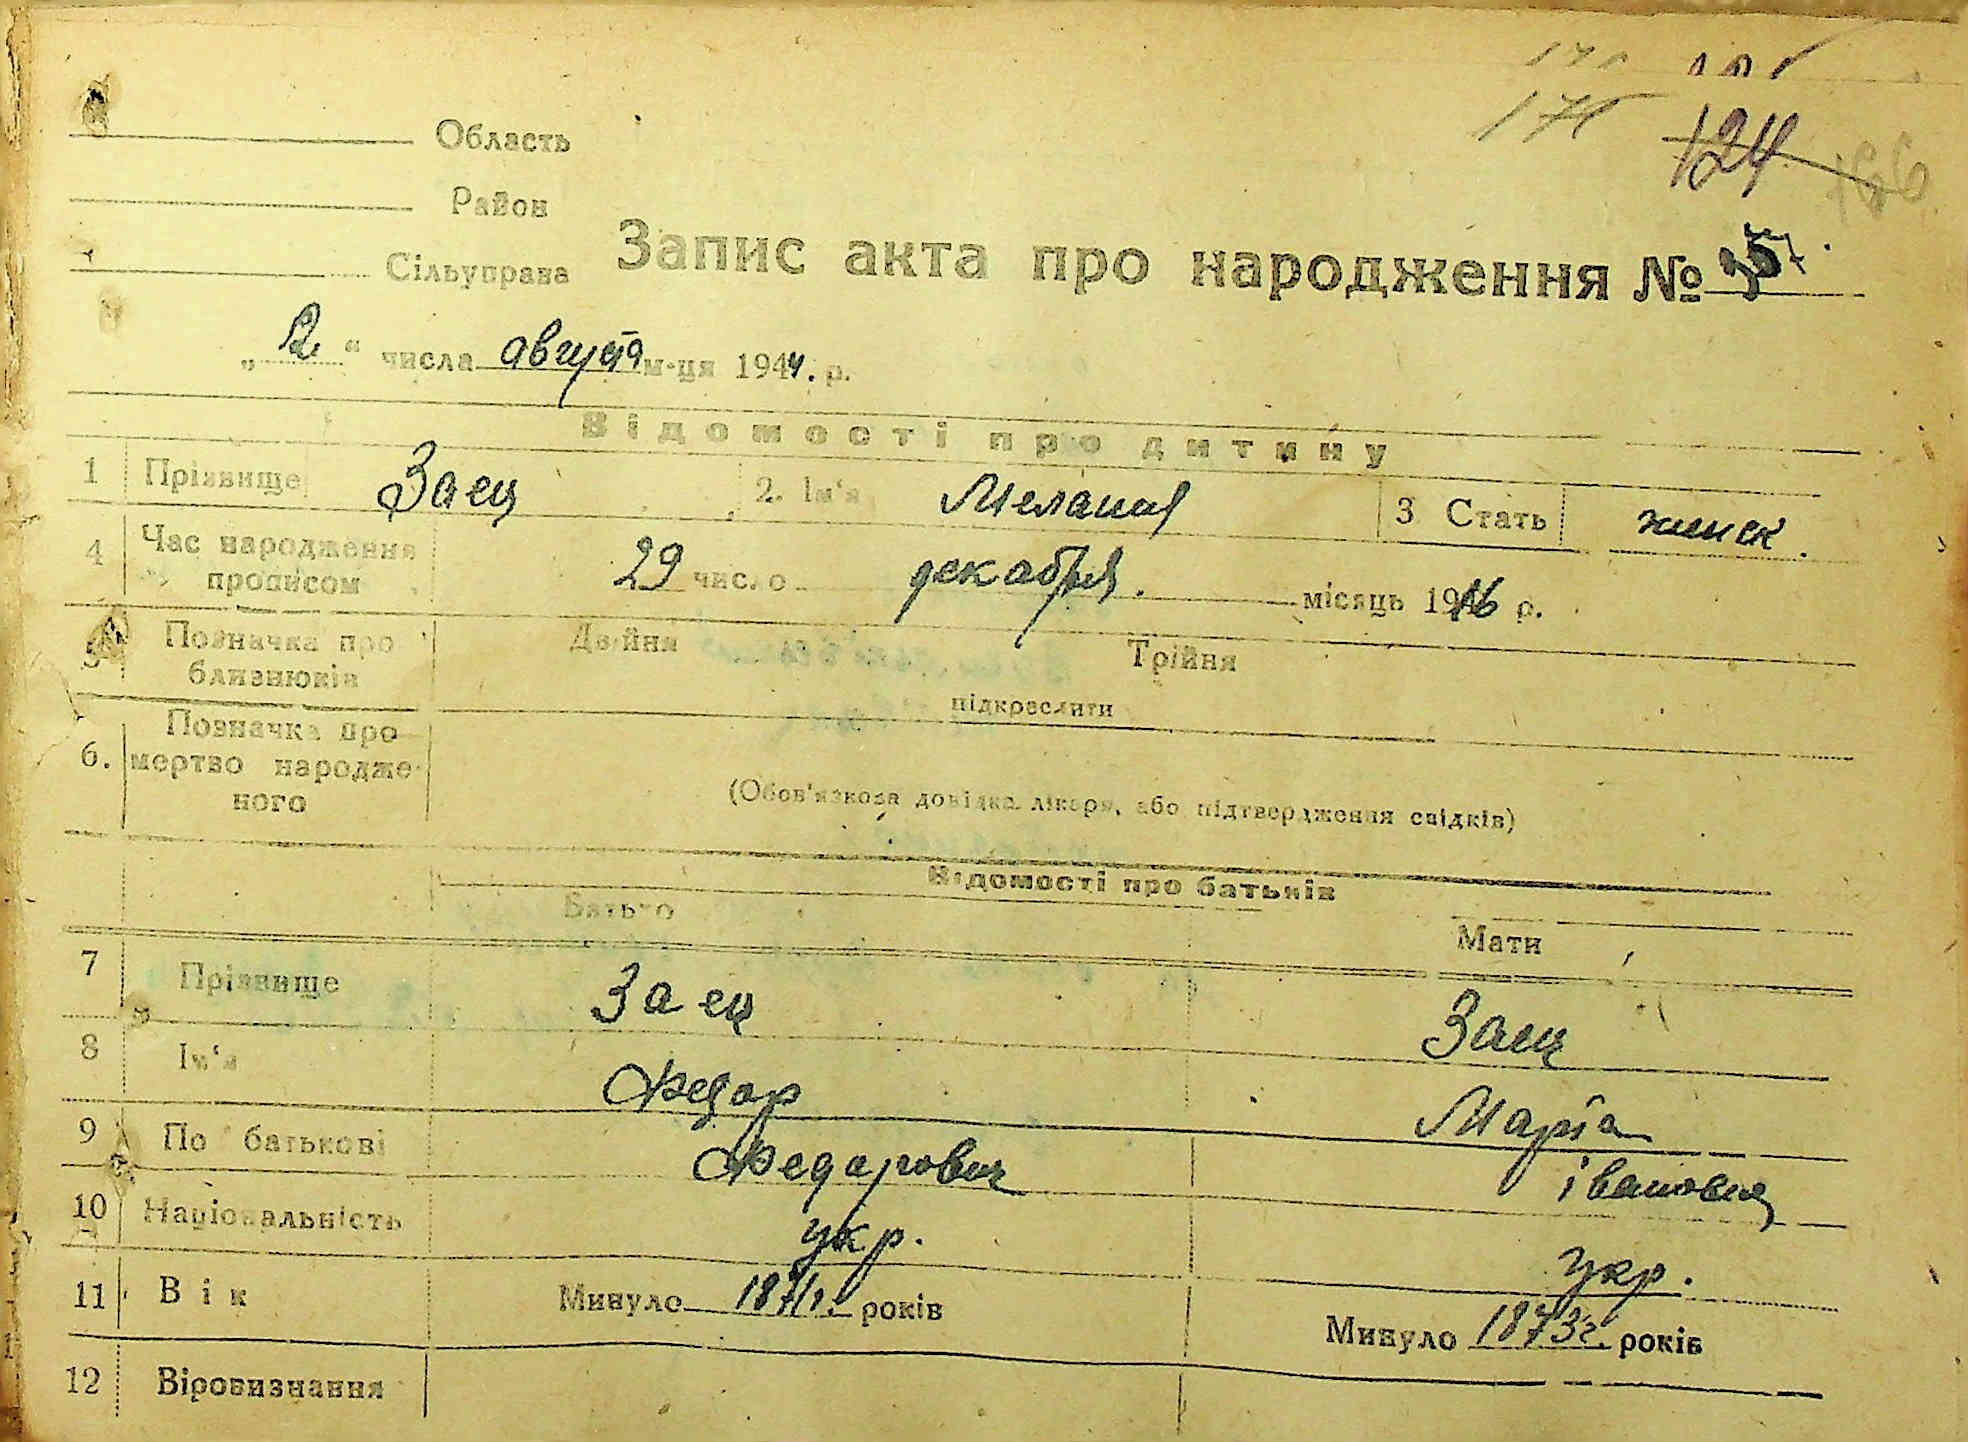 176
124
Область
Район
Сільуправа
Запис акта про народження № 57
„2“ числа августа м-ця 1944. р.
Відомості про дитину
1 Прізвище Заец 2. Ім‘я Мелания 3 Стать женск.
4 Час народження прописом 29 число декабря. місяць 1916 р.
5 Позначка про близнюків Двійня Трійня
підкреслити
6. Позначка про мертво народженого
(Обов'язкова довідка лікаря, або підтвердження свідків)
Відомості про батьків
Батько Мати
7 Прізвище Заец Заец
8 Ім‘я Федор Марїа
9 По батькові Федорович івановна
10 Національність укр. укр.
11 Вік Минуло 1871г. років Минуло 1873г. років
12 Віровизнання